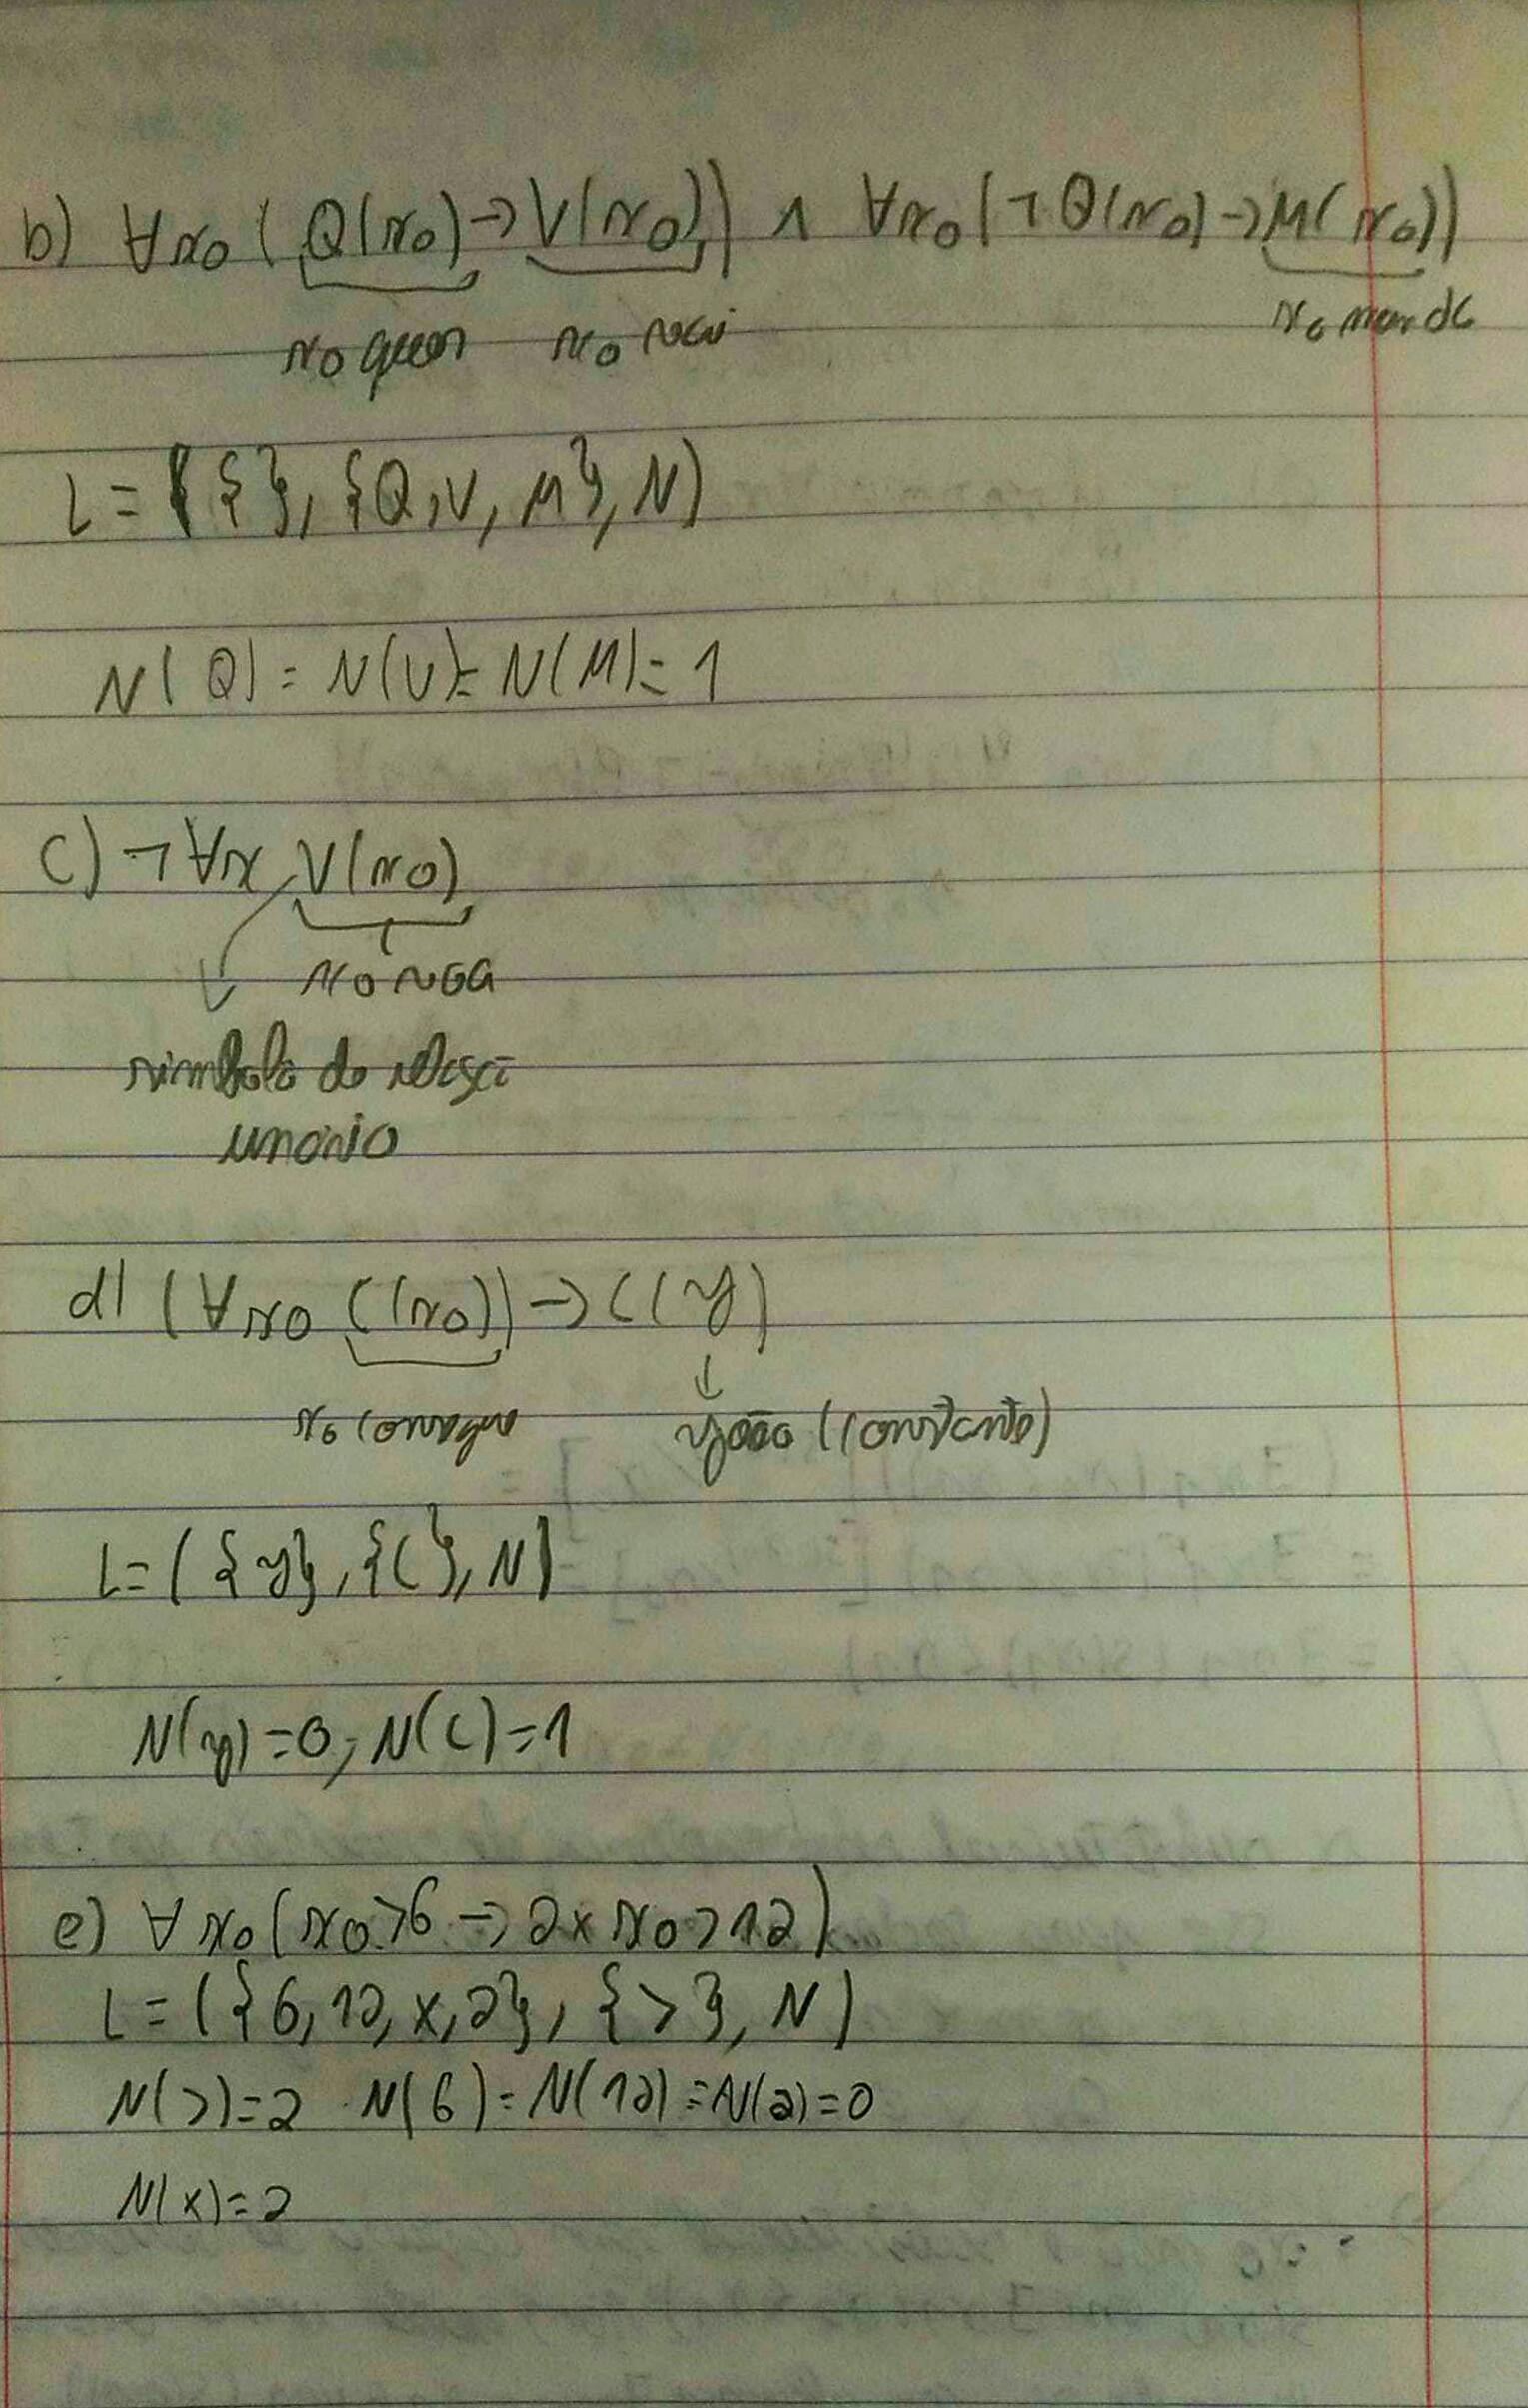 b) ∀x₀ (Q(x₀)→V(x₀)) ∧ ∀x₀(¬Q(x₀)→M(x₀))
x₀ quer x₀ vai x₀ manda
L = ({ }, {Q,V,M}, N)
N(Q) = N(V) = N(M) = 1
c) ¬∀x V(x₀)
x₀ voa
simbolo de relação
unário
d) (∀x₀ C(x₀))→C(y)
x₀ consegue joão (constante)
L=({y},{C},N)
N(y)=0, N(C)=1
e) ∀x₀(x₀>6→2×x₀>12)
L=({6,12,×,2}, {>}, N)
N(>)=2 N(6)=N(12)=N(2)=0
N(×)=2